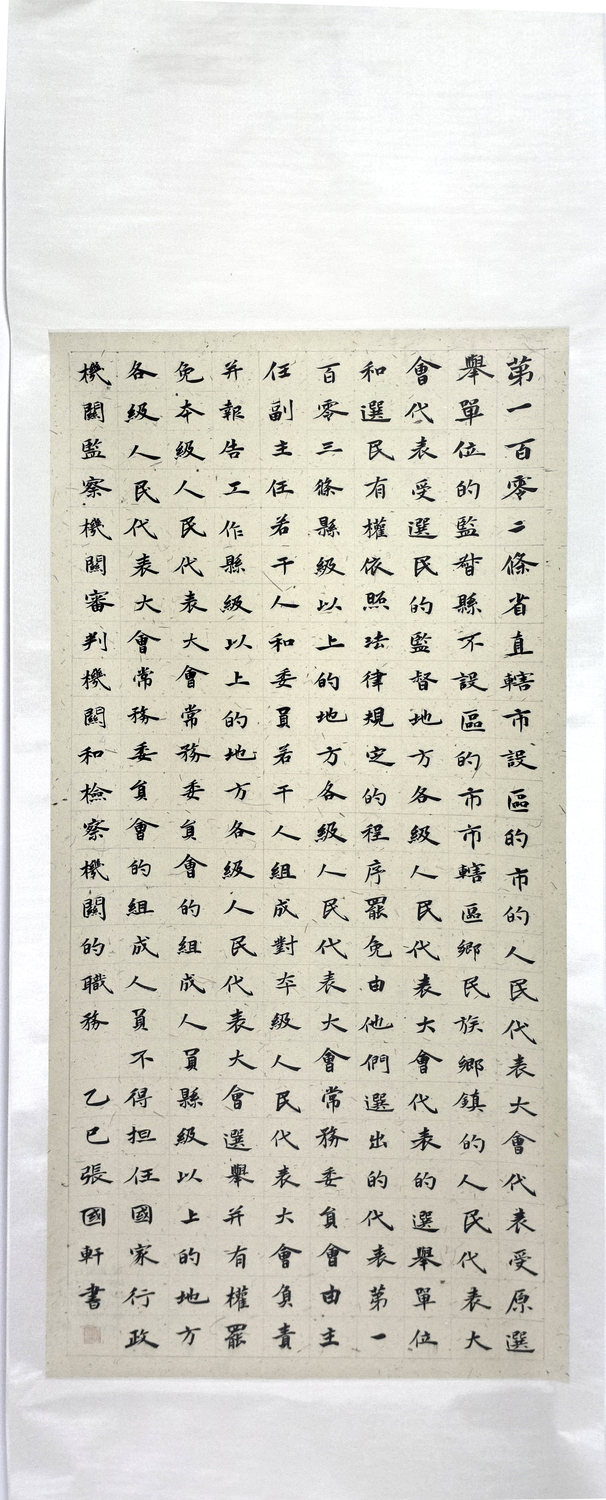 第一百零二條省直轄市設區的市的人民代表大會代表受原選
舉單位的監督縣不設區的市市轄區鄉民族鄉鎮的人民代表大
會代表受選民的監督地方各級人民代表大會代表的選舉單位
和選民有權依照法律規定的程序罷免由他們選出的代表第一
百零三條縣級以上的地方各級人民代表大會常務委員會由主
任副主任若干人和委員若干人組成對本級人民代表大會負責
并報告工作縣級以上的地方各級人民代表大會選舉并有權罷
免本級人民代表大會常務委員會的組成人員縣級以上的地方
各級人民代表大會常務委員會的組成人員不得担任國家行政
機關監察機關審判機關和檢察機關的職務 乙巳張國軒書